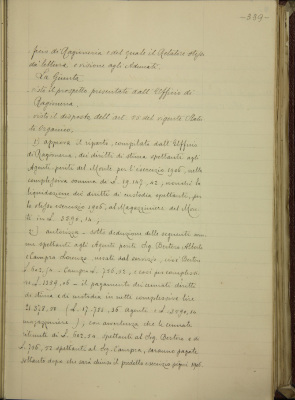 -389-
pero di Ragioneria e del quale il Relatore stesso
dà lettura e visione agli Adunati.
La Giunta
visto il prospetto presentato dall'Ufficio di
Ragioneria,
visto il disposto dell'art. 20 del vigente Stato
to Organico,
1) approva il riparto, compilato dall'Ufficio
di Ragioneria, dei diritti di stima spettanti agli
Agenti periti del Monte per l'esercizio 1906, nella
complessiva somma di L. 19.107,42, nonchè la
liquidazione dei diritti di custodia spettanti, per
lo stesso esercizio 1906, al Magazziniere del Mon
te in L. 3890,14;
2) autorizza - sotto deduzione delle seguenti som
me spettanti agli Agenti periti Sig. Bertera Alberto
e Campra Lorenzo usciti dal servizio, cioè Bertera
L. 602,54 - Campra L. 756,52, e così per complessi
ve L. 1359,06 - il pagamento dei cennati diritti
di stima e di custodia in nette complessive lire
21.578,50 (L. 17.788,36 agenti e L. 3890,14
magazziniere), con avvertenza che le cennate
latimate di L. 602,54 spettanti al Sig. Bertera e di
L. 756,52 spettanti al Sig. Campra, saranno pagate
soltanto dopo che sarà chiuso il predetto esercizio 1906.